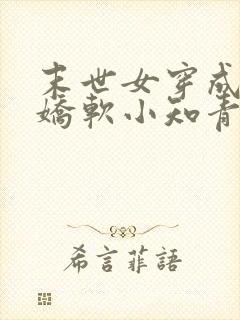 末世女穿成
嬌軟小知青
希言菲語